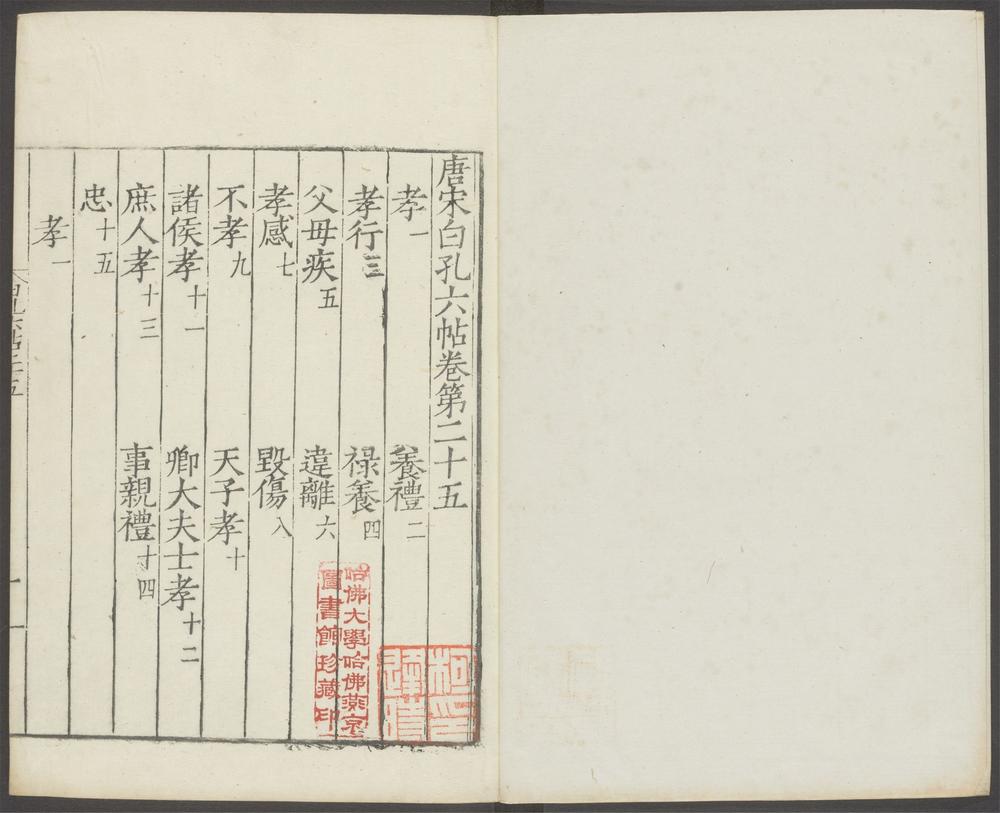 唐宋白孔六帖卷第二十五
孝一　養禮二
孝行三　禄養四
父母疾五　違離六
孝感七　毀傷八
不孝九　天子孝十
諸侯孝十一　卿大夫士孝十二
庶人孝十三　事親禮十四
忠十五
孝一
哈佛大學哈佛燕京
圖書館珍藏印